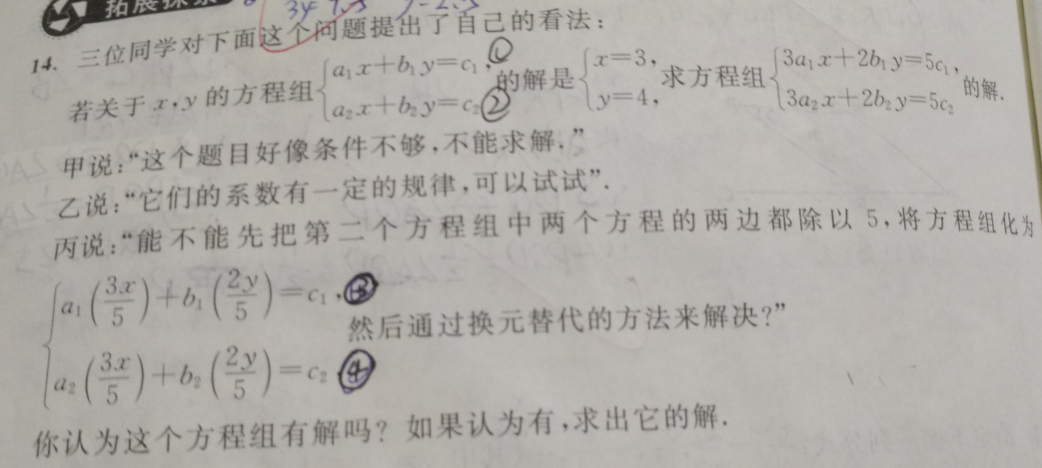 拓展探索
14. 三位同学对下面这个问题提出了自己的看法：
若关于 x,y 的方程组 { a₁x+b₁y=c₁, ① a₂x+b₂y=c₂ ② 的解是 { x=3, y=4, 求方程组 { 3a₁x+2b₁y=5c₁, 3a₂x+2b₂y=5c₂ 的解.
甲说：“这个题目好像条件不够，不能求解.”
乙说：“它们的系数有一定的规律，可以试试”.
丙说：“能不能先把第二个方程组中两个方程的两边都除以 5，将方程组化为
{ a₁(3x/5)+b₁(2y/5)=c₁, ③
然后通过换元替代的方法来解决?”
a₂(3x/5)+b₂(2y/5)=c₂ ④
你认为这个方程组有解吗? 如果认为有，求出它的解.